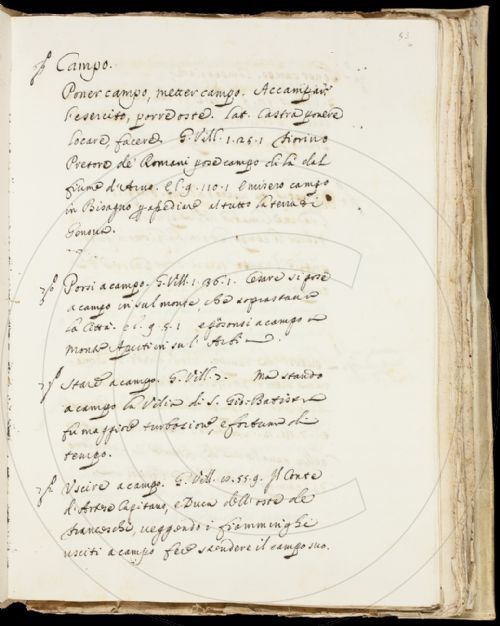 53
Campo.
Poner campo, metter campo. Accampar
l'esercito, porre oste. Lat. Castra ponere
locare, facere. G. Vill. 1. 25. 1 Fiorino
Pretore de Romani pose campo di là dal
fiume d'Arno. e l. 9. 110. 1 e misero campo
in Bisagno p assediare al tutto la terra di
Genova.
Porsi a campo. G. Vill. 1. 36. 1. Cesare si pose
a campo in sul monte, che soprastava
la Città. e l. 9. 5. 1 e posonsi a campo a
monte in sul
Stare a campo. G. Vill. 7. Ma stando
a campo la Vilia di S. Gio: Batista
fu maggiore turbazione, e fortuna di
tempo.
Uscire a campo. G. Vill. 10. 55. 9. Il Conte
d' Capitano, e Duca dell' oste de
Franceschi, veggendo i fiamminghi
usciti a campo fece scendere il campo suo.